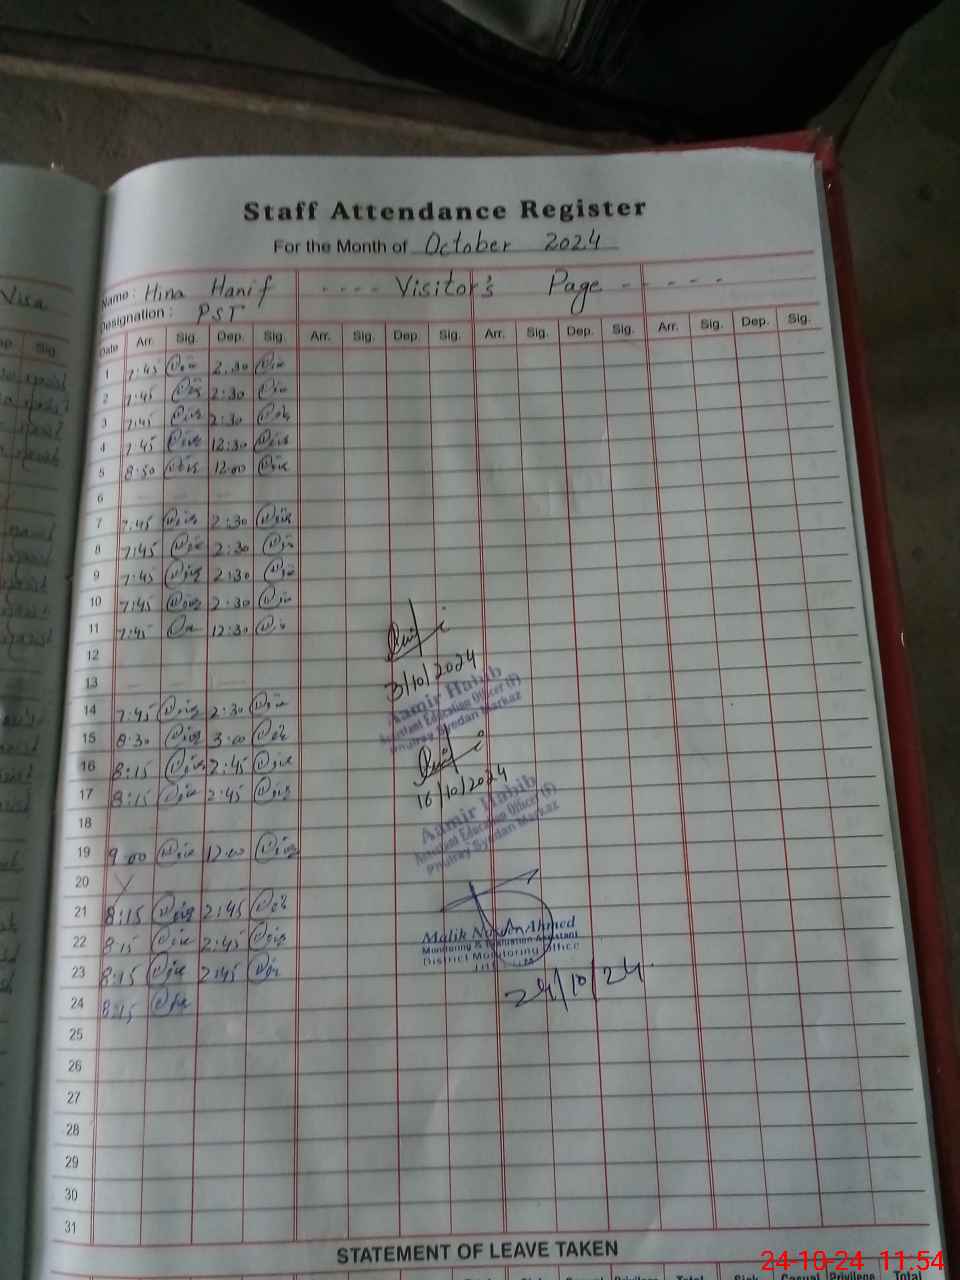 Staff Attendance Register
For the Month of October 2024
Visa
Name : Hina Hanif .... Visitor's Page - - - - -
Designation : PST
Sig.
Date Arr. Sig. Dep. Sig. Arr. Sig. Dep. Sig. Arr. Sig. Dep. Sig. Arr. Sig. Dep. Sig.
1 7:45 2:30
2 7:45 2:30
3 7:45 2:30
4 7:45 12:30
5 8:30 12:00
6
7 7:45 2:30
8 7:45 2:30
9 7:45 2:30
10 7:45 2:30
11 7:45 12:30
12
13
3/10/2024
Aamir Habib
Assistant Education Officer (F)
Syedan Markaz
14 7:45 2:30
15 8:30 3:00
16 8:15 2:45
17 8:15 2:45
16/10/2024
Aamir Habib
Assistant Education Officer (F)
Syedan Markaz
18
19 9:00 12:00
20
21 8:15 2:45
22 8:15 2:45
23 8:15 2:45
24 8:15
Malik Ahmed
Monitoring & Evaluation Assistant
District Monitoring Office
24/10/24
25
26
27
28
29
30
31
STATEMENT OF LEAVE TAKEN
Casual Privilege Total Sick Casual Privilege Total
24-10-24 11:54